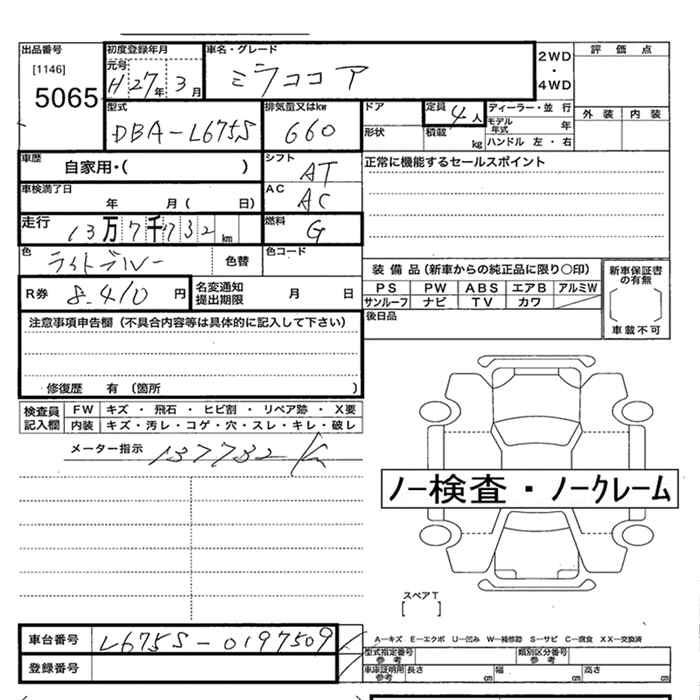 出品番号
[1146]
5065
初度登録年月
元号 H27年 3月
車名・グレード
ミラココア
2WD
・
4WD
評価点
外装 内装
型式
DBA-L675S
排気量又はkw
660
ドア
形状
定員 4人
積載 kg
ディーラー・並行
モデル年式 年
ハンドル 左・右
車歴 自家用・( )
シフト AT
正常に機能するセールスポイント
車検満了日 年 月( 日)
AC AC
走行 13万7千732km
燃料 G
色 ライトブルー 色替
色コード
R券 8,410円
名変通知提出期限 月 日
装備品(新車からの純正品に限り○印)
PS PW ABS エアB アルミW
サンルーフ ナビ TV カワ
新車保証書の有無
車載不可
後日品
注意事項申告欄(不具合内容等は具体的に記入して下さい)
修復歴 有(箇所 )
検査員記入欄
FW キズ・飛石・ヒビ割・リペア跡・X要
内装 キズ・汚レ・コゲ・穴・スレ・キレ・破レ
メーター指示 137732km
ノー検査・ノークレーム
スペアT
[ ]
車台番号 L675S-0197509
登録番号
A-キズ E-エクボ U-凹み W-補修跡 S-サビ C-腐食 XX-交換済
型式指定番号 参考
類別区分番号 参考
車庫証明用 参考 長さ cm 幅 cm 高さ cm